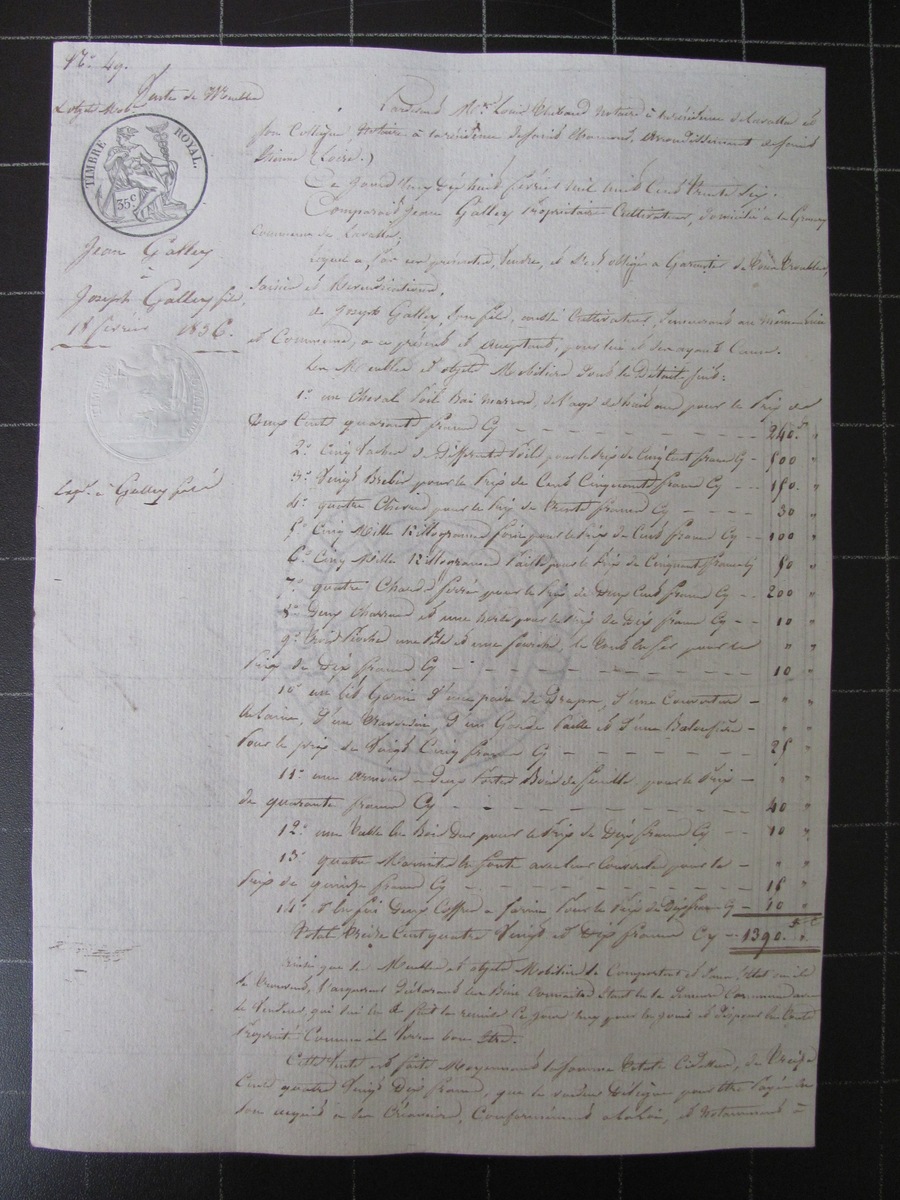 N.° 49.
Vente de Meubles
& objets Mob.
TIMBRE ROYAL.
35 c.
Jean Galley
à
Joseph Galley fils.
18 février 1836.
à Galley père
Pardevant M.e Louis notaire à la résidence de Lavalla et
son Collègue Notaire à la résidence de Saint Chamond, arrondissement de Saint
Etienne (Loire.)
Ce jourd'huy Dix huit février Mil huit Cent Trente Six.
Comparait Jean Galley Propriétaire Cultivateur, domicilié à
Commune de Lavalla;
Lequel a, par ces présentes, Vendu, et s'est obligé à Garantir de tous troubles,
Saisies et Revendications,
à Joseph Galley, Son fils, aussi Cultivateur, demeurant au même lieu
et Commune, à ce présent et acceptant, pour lui et les ayant Cause.
Les Meubles et objets Mobiliers dont le Détail suit:
1.° un Cheval Poil Bai marron, de l'age de huit ans pour le Prix de
Deux Cent quarante francs Cy 240. f "
2.° Cinq Vaches de Différents Poils pour le Prix de Cinq Cent francs Cy 500 "
3.° Vingt Brebis pour le Prix de Cent Cinquante francs Cy 150. "
4.° quatre Chèvres pour le Prix de Trente francs Cy 30 "
5.° Cinq Mille Killogrammes foin pour le Prix de Cent francs Cy 100 "
6.° Cinq Mille Killogrammes Paille pour le Prix de Cinquante francs Cy 50 "
7.° quatre Chars ferrés pour le Prix de Deux Cent francs Cy 200 "
8.° Deux Charrues et une herse pour le Prix de Dix francs Cy 10 "
9.° Trois Pioches une Pèle et une fourche, le tout en fer pour le " "
Prix de Dix francs Cy 10 "
10.° un Lit Garni d'une paire de Draps, d'une Couverture "
de Laine, d'un Traversin, d'un Garde Paille et d'une "
Pour le prix de Vingt Cinq francs Cy 25 "
11.° une Armoire à Deux Portes Bois de pour le Prix " "
de quarante francs Cy 40 "
12.° une Table en Bois Dur pour le Prix de Dix francs Cy 10 "
13.° quatre Marmites en fonte avec leur Couvercle pour le " "
Prix de quinze francs Cy 15 "
14.° Et enfin Deux Coffres à farine Pour le Prix de Dix francs Cy 10 "
Total Treize Cent quatre Vingt et Dix francs Cy 1390. f c
Ainsi que les Meubles et objets Mobiliers se Comportent et dans l'état où ils
se trouvent, l'acquéreur Déclarant les Bien Connaitre Etant en la Demeure Commune avec
le Vendeur, qui lui en fait la remise Ce jour huy pour en jouir et disposer en toute
Propriété Comme il Verra bon Etre.
Cette Vente est faite Moyennant la somme Totale de Treize
Cent quatre Vingt Dix francs, que le vendeur Délègue pour être Payée
son acquit à ses Créanciers, Conformément à la loi, et Notamment à